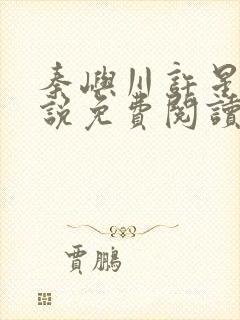 秦嶼川許是
說免費閱讀
賈鵬